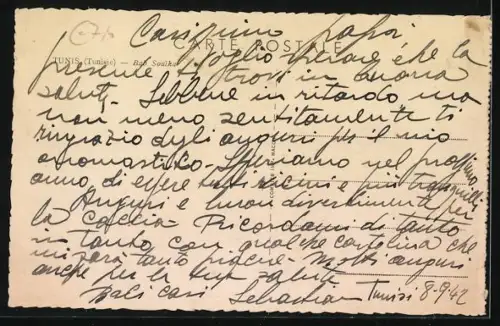 Carissimo papà
CARTE POSTALE
TUNIS (Tunisie) — Bab Souika
presente ti voglio sperare che la
trovi in buona
salute. Sebbene in ritardo ma
non meno sentitamente ti
ringrazio degli auguri per il mio
onomastico. Speriamo nel prossimo
anno di essere tutti vicini e più tranquilli
Auguri e buon divertimento per
la caccia. Ricordami di tanto
in tanto con qualche cartolina che
mi farà tanto piacere. Molti auguri
anche per la tua salute
Baci cari Sebastian Tunisi 8-9-42